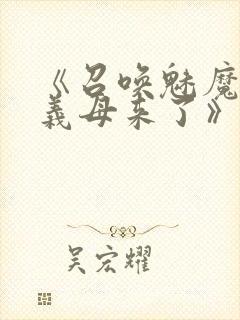 《召唤魅魔
義母来了》
吴宏耀